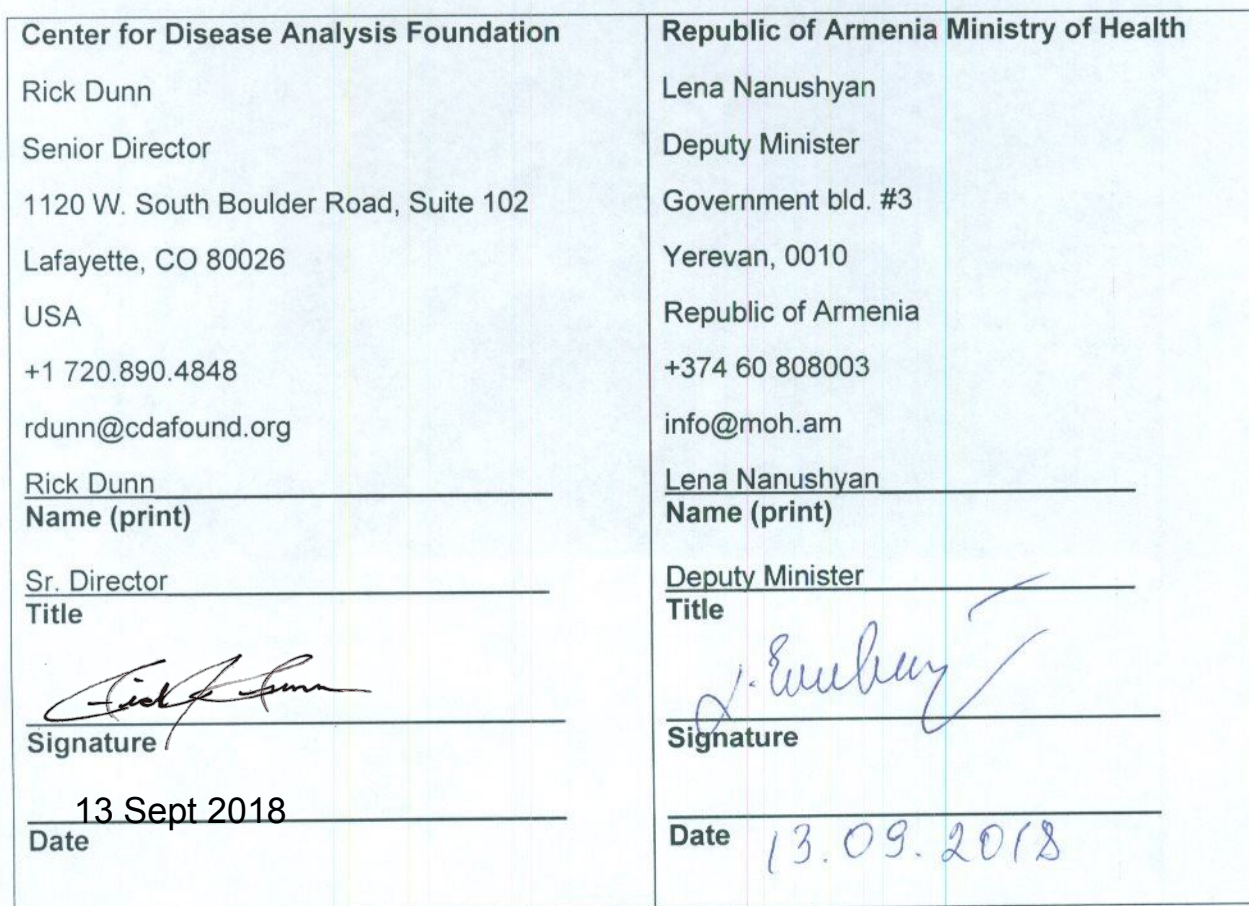 Center for Disease Analysis Foundation
Rick Dunn
Senior Director
1120 W. South Boulder Road, Suite 102
Lafayette, CO 80026
USA
+1 720.890.4848
rdunn@cdafound.org
Rick Dunn
Name (print)
Sr. Director
Title
Signature
13 Sept 2018
Date
Republic of Armenia Ministry of Health
Lena Nanushyan
Deputy Minister
Government bld. #3
Yerevan, 0010
Republic of Armenia
+374 60 808003
info@moh.am
Lena Nanushyan
Name (print)
Deputy Minister
Title
Signature
Date 13.09.2018